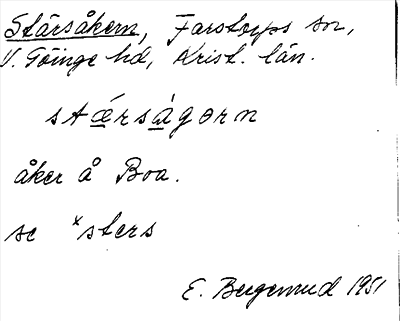 Stärsåkern, Farstorps sn,
V. Göinge hd, Krist. län.
stǽrsågərn
åker å Boa.
se *sters
E. Bergenrud 1951